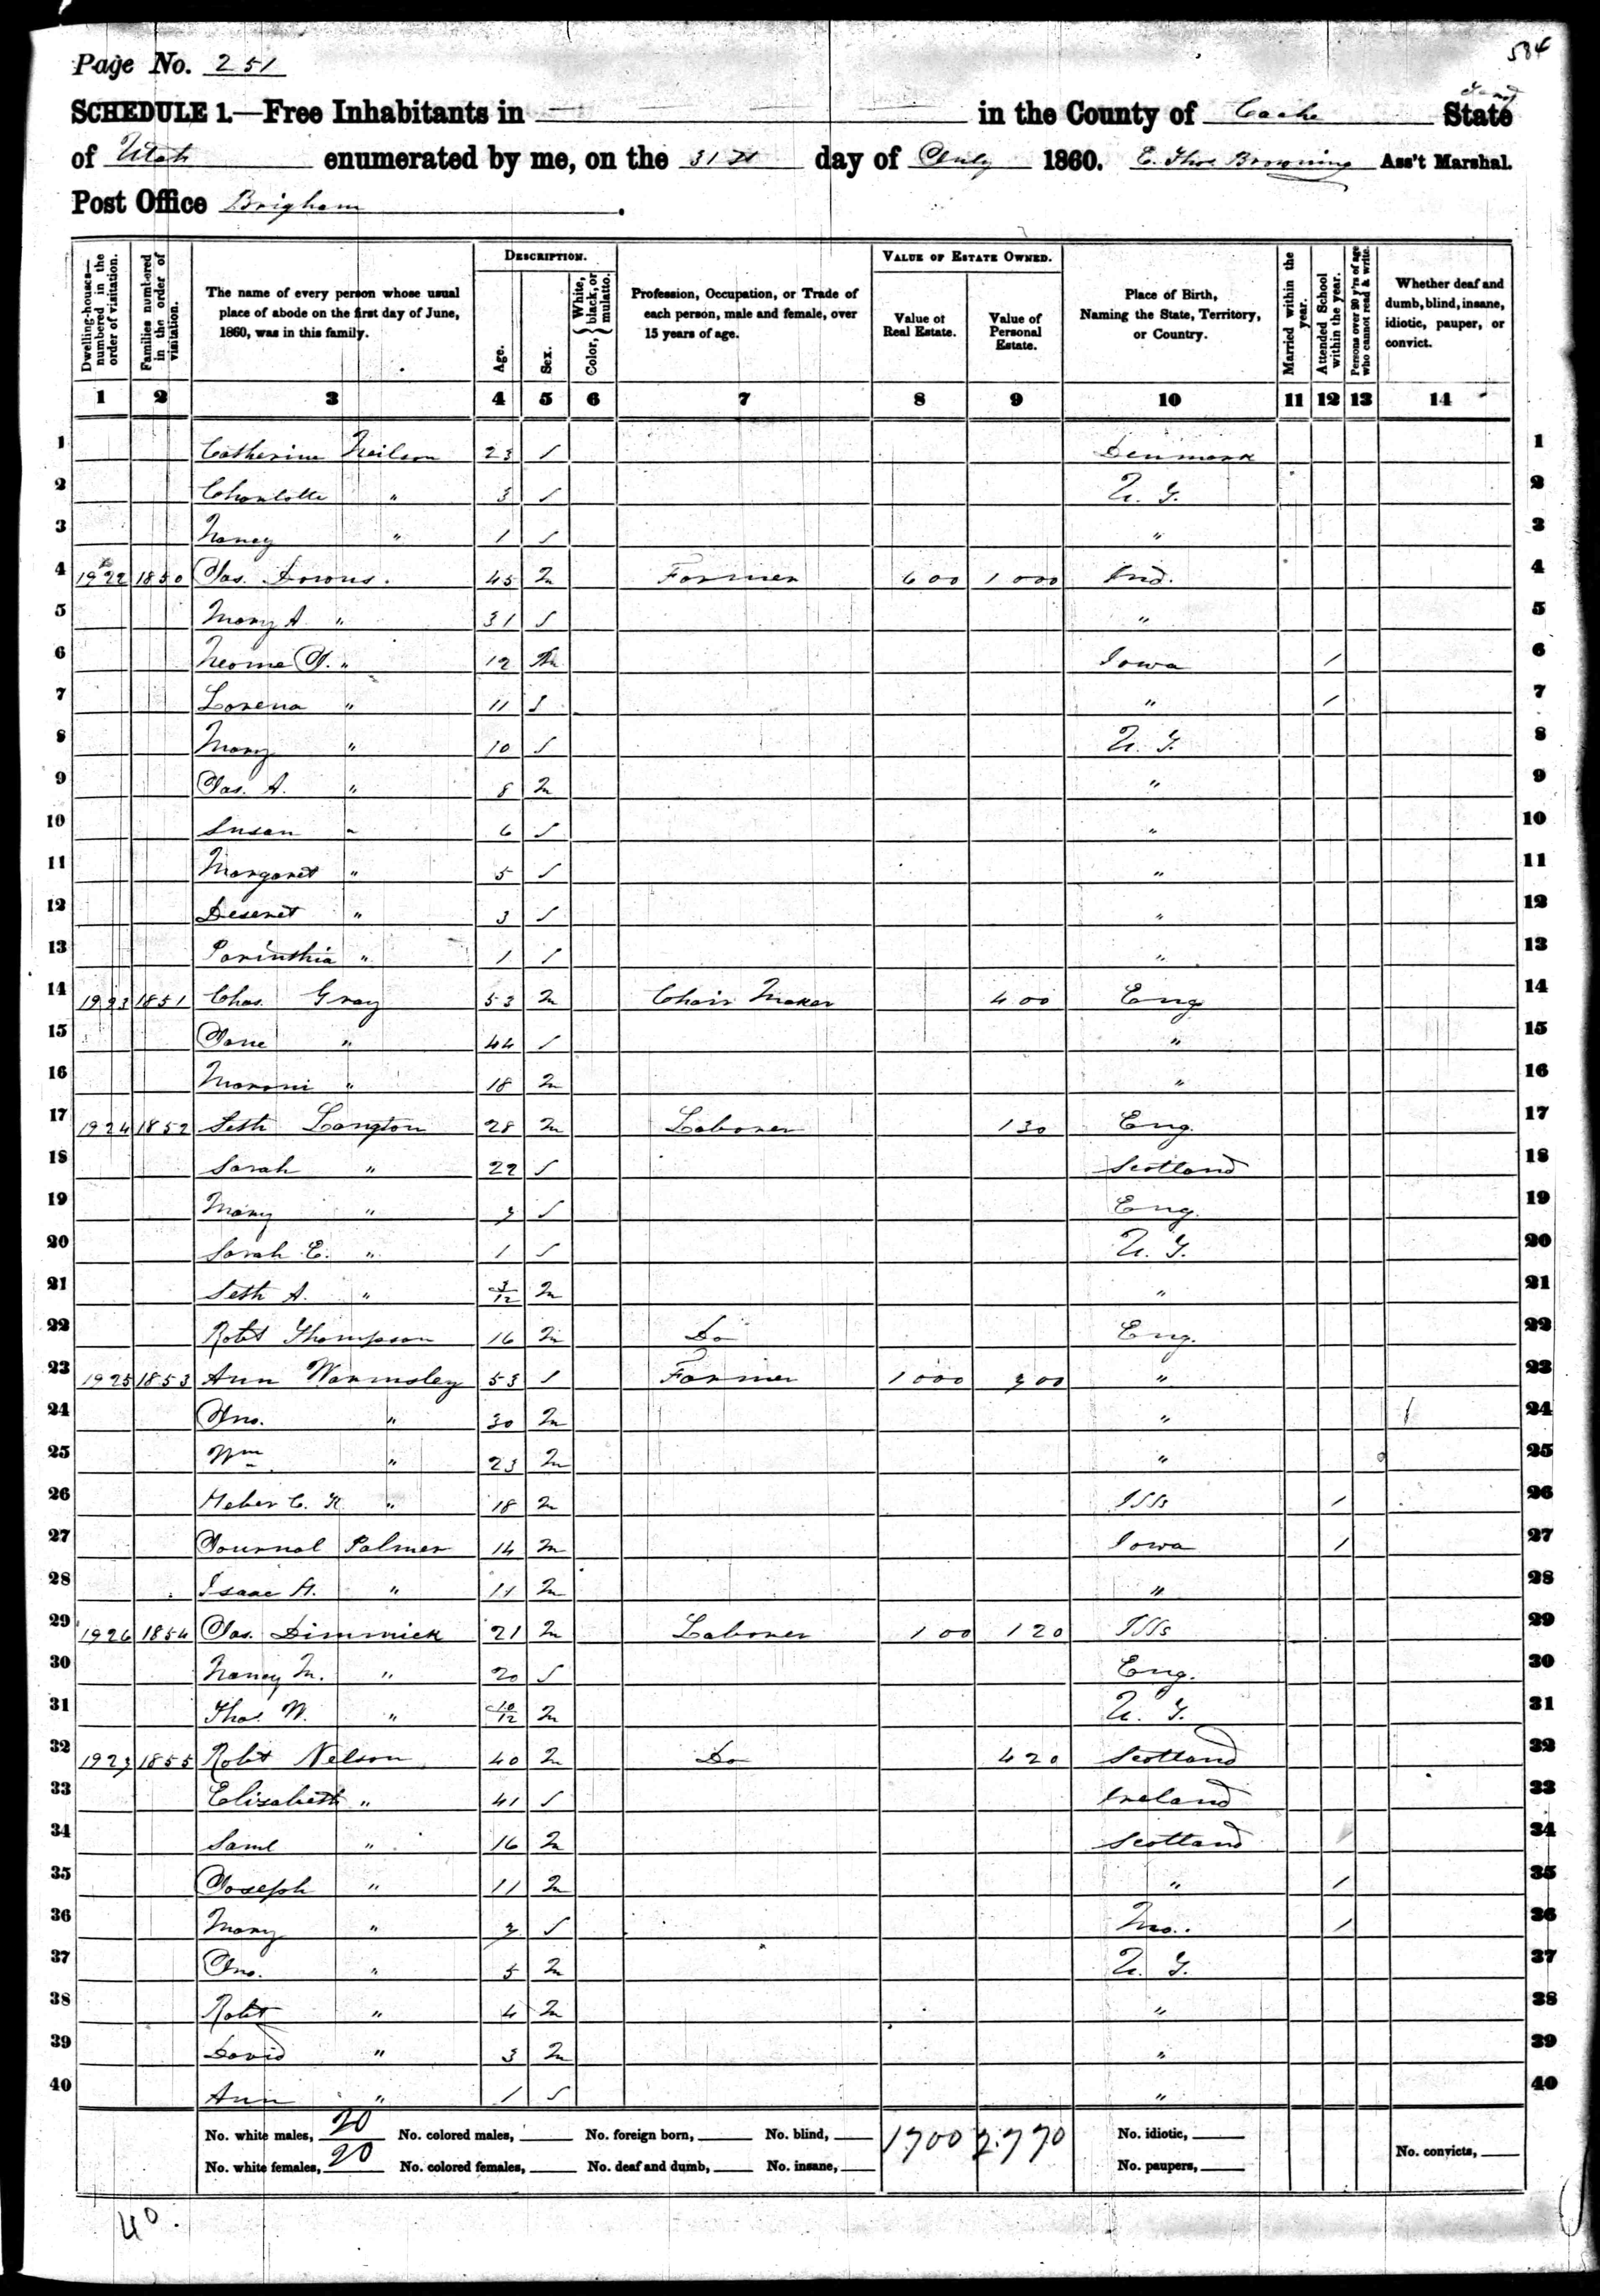 584
Page No. 251
SCHEDULE 1.—Free Inhabitants in in the County of Cache State
of Utah enumerated by me, on the 31st day of July 1860. E. Thos Browning Ass't Marshal.
Post Office Brigham.
Dwelling-houses—numbered in the order of visitation. Families numbered in the order of visitation. The name of every person whose usual place of abode on the first day of June, 1860, was in this family. DESCRIPTION. Age. Sex. Color, White, black, or mulatto. Profession, Occupation, or Trade of each person, male and female, over 15 years of age. VALUE OF ESTATE OWNED. Value of Real Estate. Value of Personal Estate. Place of Birth, Naming the State, Territory, or Country. Married within the year. Attended School within the year. Persons over 20 y'rs of age who cannot read & write. Whether deaf and dumb, blind, insane, idiotic, pauper, or convict.
1 2 3 4 5 6 7 8 9 10 11 12 13 14
1 Catherine Neilson 23 f Denmark 1
2 Charlotte " 3 f U. T. 2
3 Nancy " 1 f " 3
4 1922 1850 Jas. Downs. 45 m Farmer 600 1000 Ind. 4
5 Mary A. " 31 f " 5
6 J. " 12 m Iowa / 6
7 Lorena " 11 f " / 7
8 Mary " 10 f U. T. 8
9 Jas. A. " 8 m " 9
10 Susan " 6 f " 10
11 Margaret " 5 f " 11
12 Deseret " 3 f " 12
13 Parinthia " 1 f " 13
14 1923 1851 Chas. Gray 53 m Chair Maker 400 Eng 14
15 Jane " 44 f " 15
16 Moroni " 18 m " 16
17 1924 1852 Seth Langton 28 m Laborer 130 Eng. 17
18 Sarah " 22 f Scotland 18
19 Mary " 7 f Eng. 19
20 Sarah E. " 1 f U. T. 20
21 Seth A. " 3/12 m " 21
22 Robt Thompson 16 m Do Eng. 22
23 1925 1853 Ann Warmsley 53 f Farmer 1000 700 " 23
24 Jno. " 30 m " / 24
25 Wm " 23 m " 25
26 Heber C. K. " 18 m Ills / 26
27 Journal Palmer 14 m Iowa / 27
28 Isaac H. " 11 m " 28
29 1926 1854 Jas. Dimmick 21 m Laborer 100 120 Ills 29
30 Nancy M. " 20 f Eng. 30
31 Thos. W. " 10/12 m U. T. 31
32 1927 1855 Robt Nelson 40 m Do 420 Scotland 32
33 Elizabeth " 41 f Ireland 33
34 Saml " 16 m Scotland / 34
35 Joseph " 11 m " / 35
36 Mary " 7 f Mo. / 36
37 Jno. " 5 m U. T. 37
38 Robt " 4 m " 38
39 David " 3 m " 39
40 Ann " 1 f " 40
No. white males, 20 No. colored males, No. foreign born, No. blind, 1700 2770 No. idiotic,
No. white females, 20 No. colored females, No. deaf and dumb, No. insane, No. paupers, No. convicts,
40.